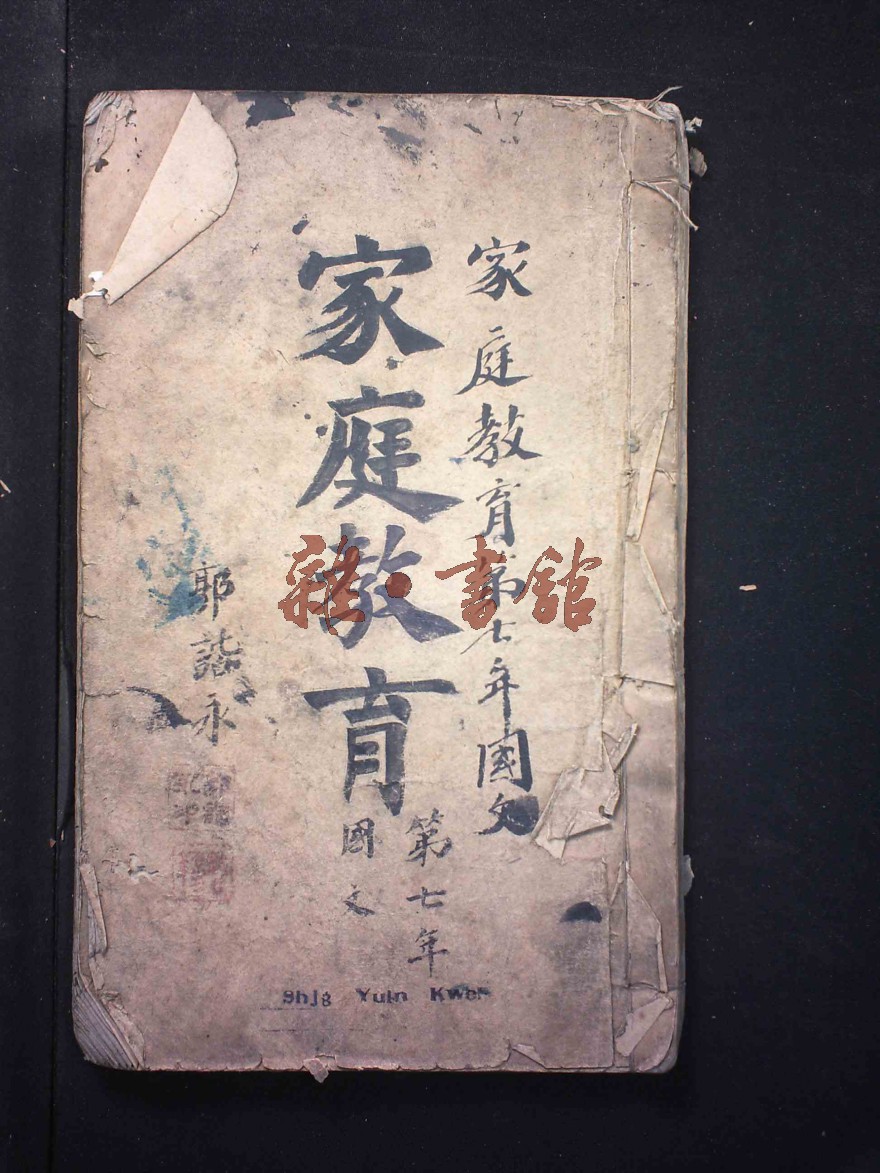 家庭教育第七年國文
家庭教育
第七年
國文
郭誌永
雜·書館
Shig Yuin Kwei